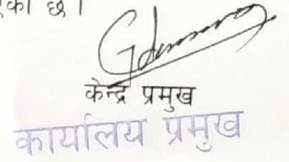 एको छ।
केन्द्र प्रमुख
कार्यालय प्रमुख